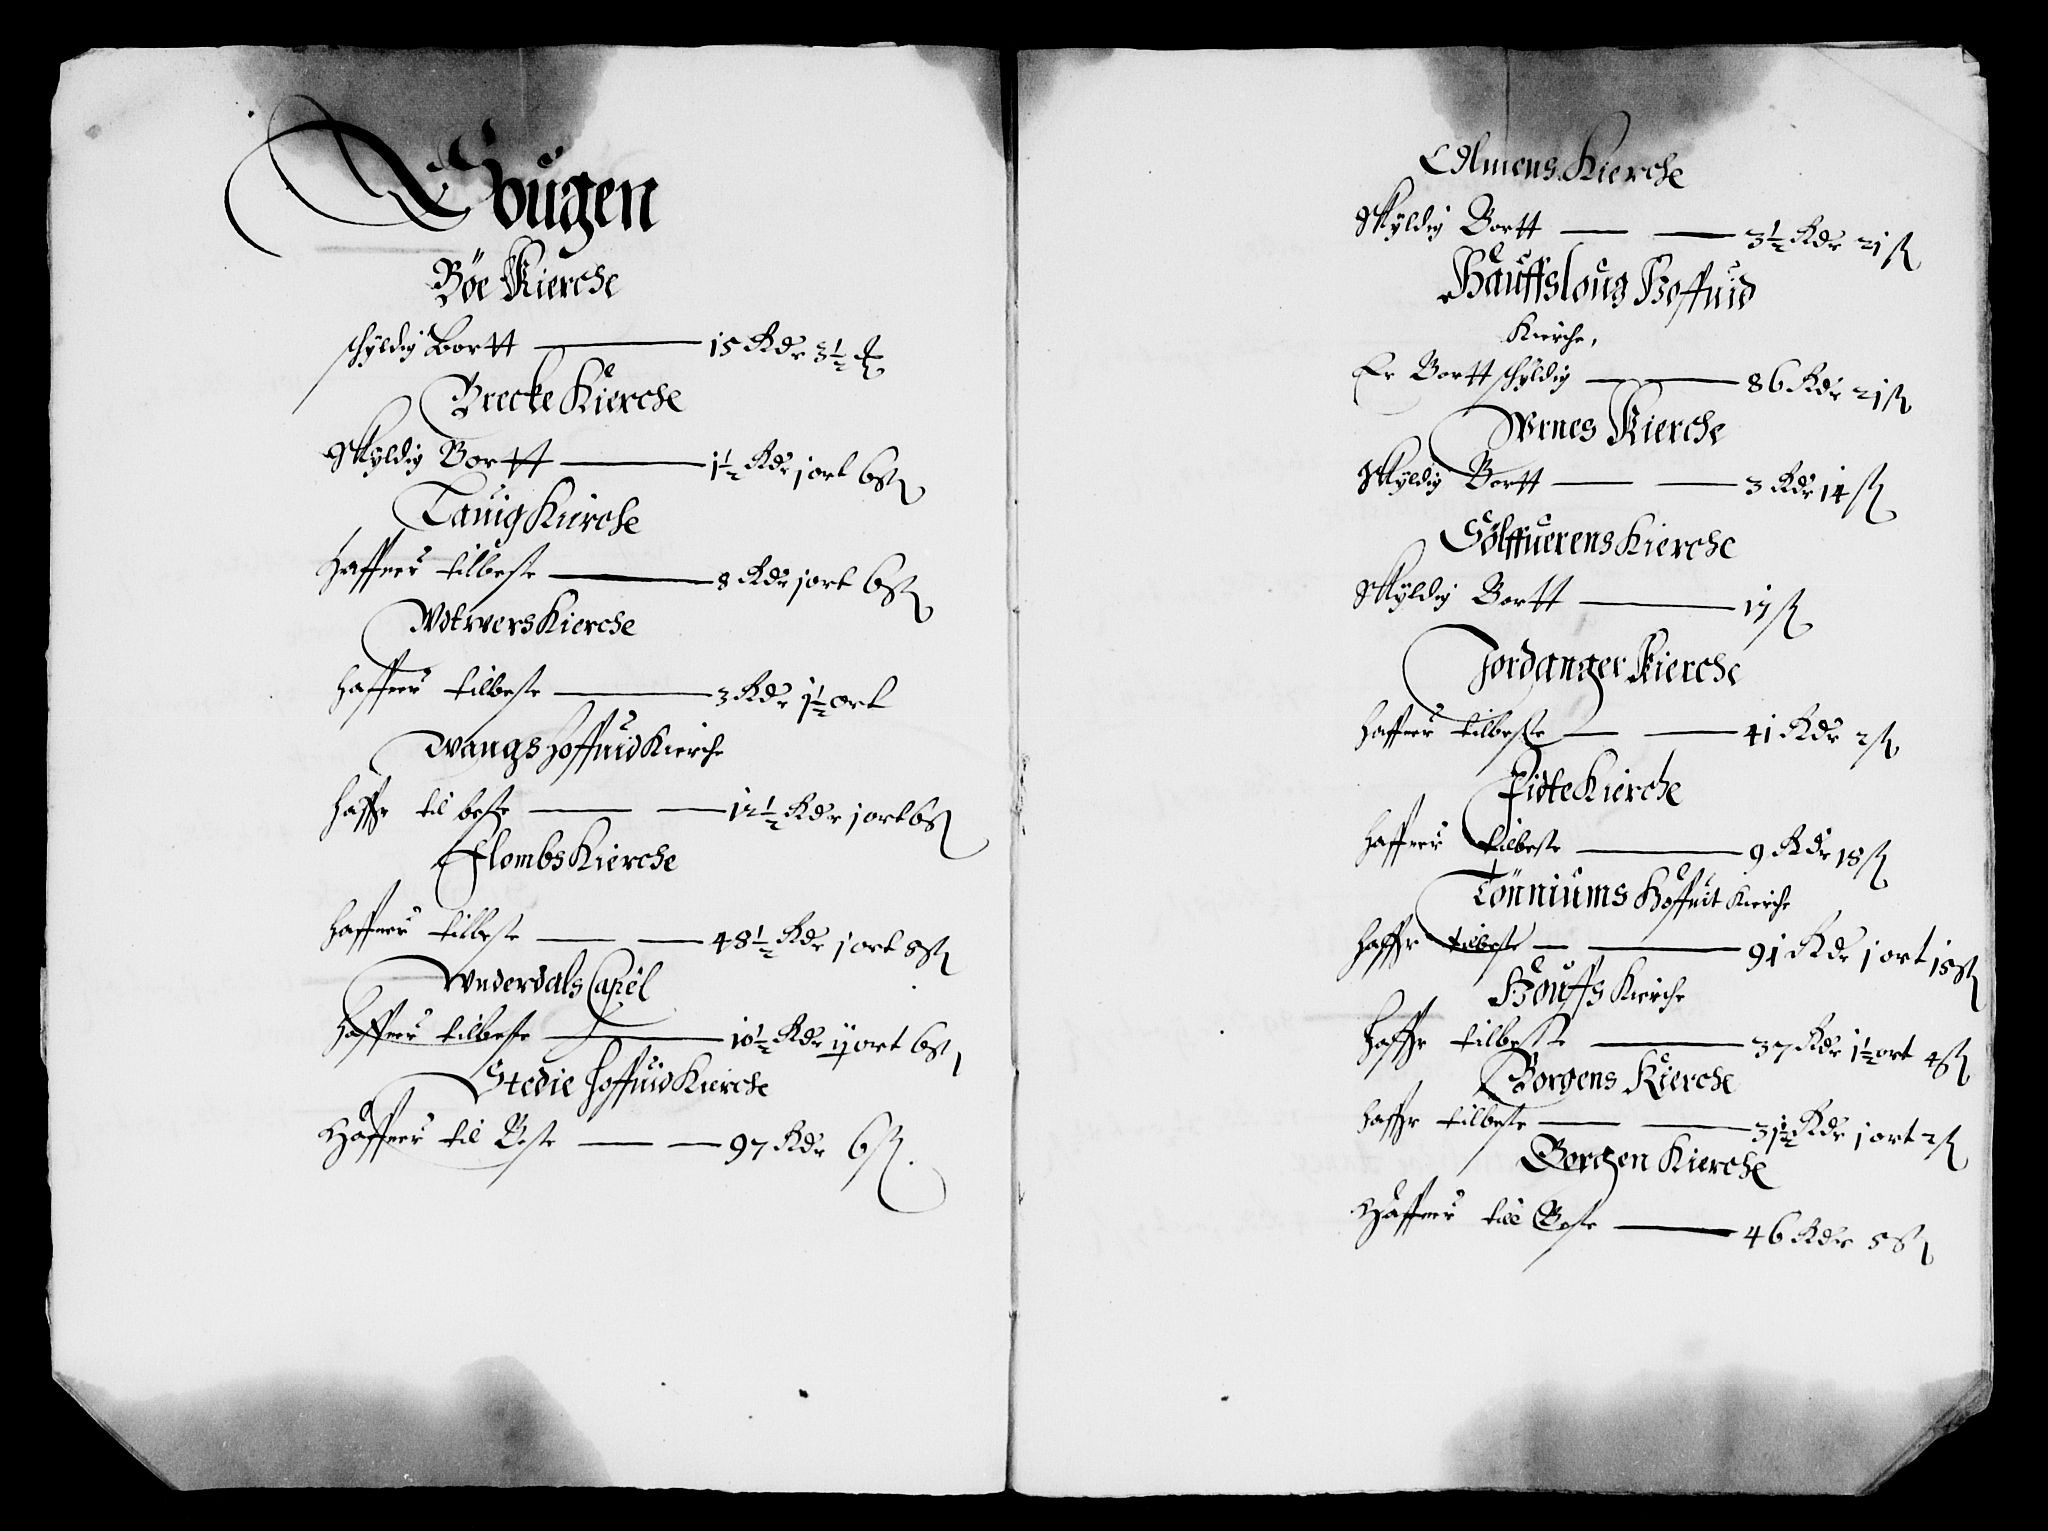 Sougen
Böe Kierche
schyldig Bortt — 15 Rdr 3½ ß
Brecke Kierche
Skyldig Bortt — 1½ Rdr j ort 6 ß
Tauig Kierche
Haffuer tilbeste — 8 Rdr j ort 6 ß
Wdtwers Kierche
haffuer tilbeste — 3 Rdr 1½ ort
Wangs Hoffuid Kierche
haffr til beste — — 12½ Rdr j ort 6 ß
Flombs Kierche
haffuer tilbeste — — 48½ Rdr j ort 8 ß
Wnderdals Capel
haffuer tilbeste — 10½ Rdr ij ort 6 ß
Stedie Hoffuid Kierche
Haffuer til Beste — — 97 Rdr 6 ß.
Olmens Kierche
Skyldig Bortt — — 3½ Rdr 21 ß
Hauffsloug Hoffuid
Kierche,
Er Bortt schyldig — 86 Rdr 21 ß
Wrnes Kierche
Skyldig Bortt — — 3 Rdr 14 ß
Sölffuerens Kierche
Skyldig Bortt — 17 ß
Jordanger Kierche
haffuer tilbeste — — 41 Rdr 2 ß
Fidte Kierche
haffuer tilbeste — 9 Rdr 18 ß
Tönniums Hoffuit Kierche
haffr tilbeste — — 91 Rdr j ort 15 ß
Houffs Kierche
haffr tilbeste — 37 Rdr 1½ ort 4 ß
Borgens Kierche
haffr tilbeste — — 31½ Rdr j ort 2 ß
Borchen Kierche
Haffuer till Beste — 46 Rdr 5 ß